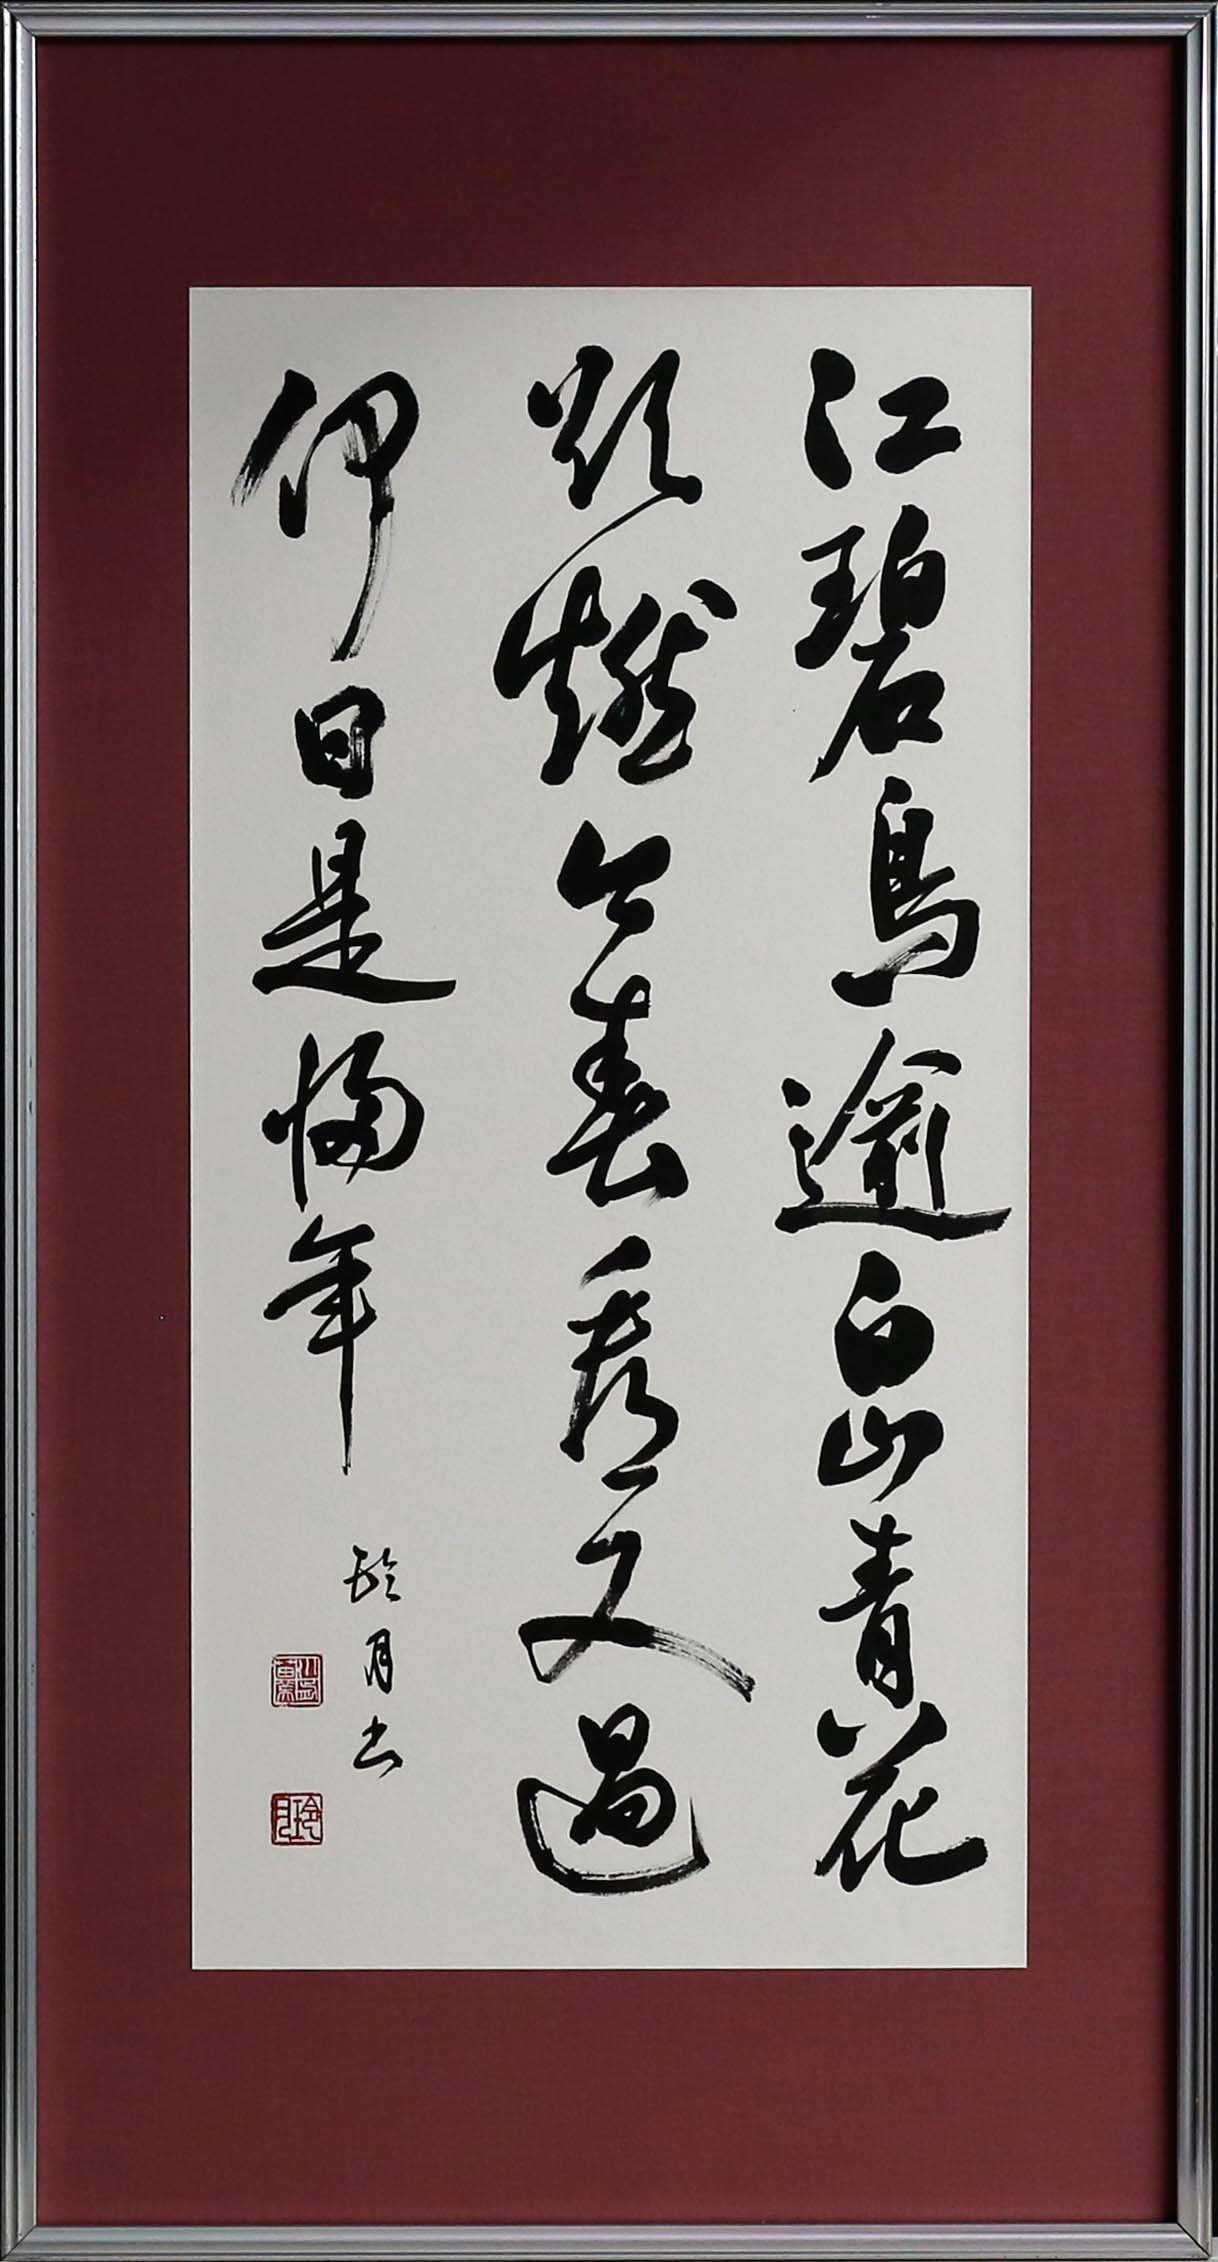 江碧鳥逾白山青花
欲燃今春看又過
何日是帰年
玲月书
玲月